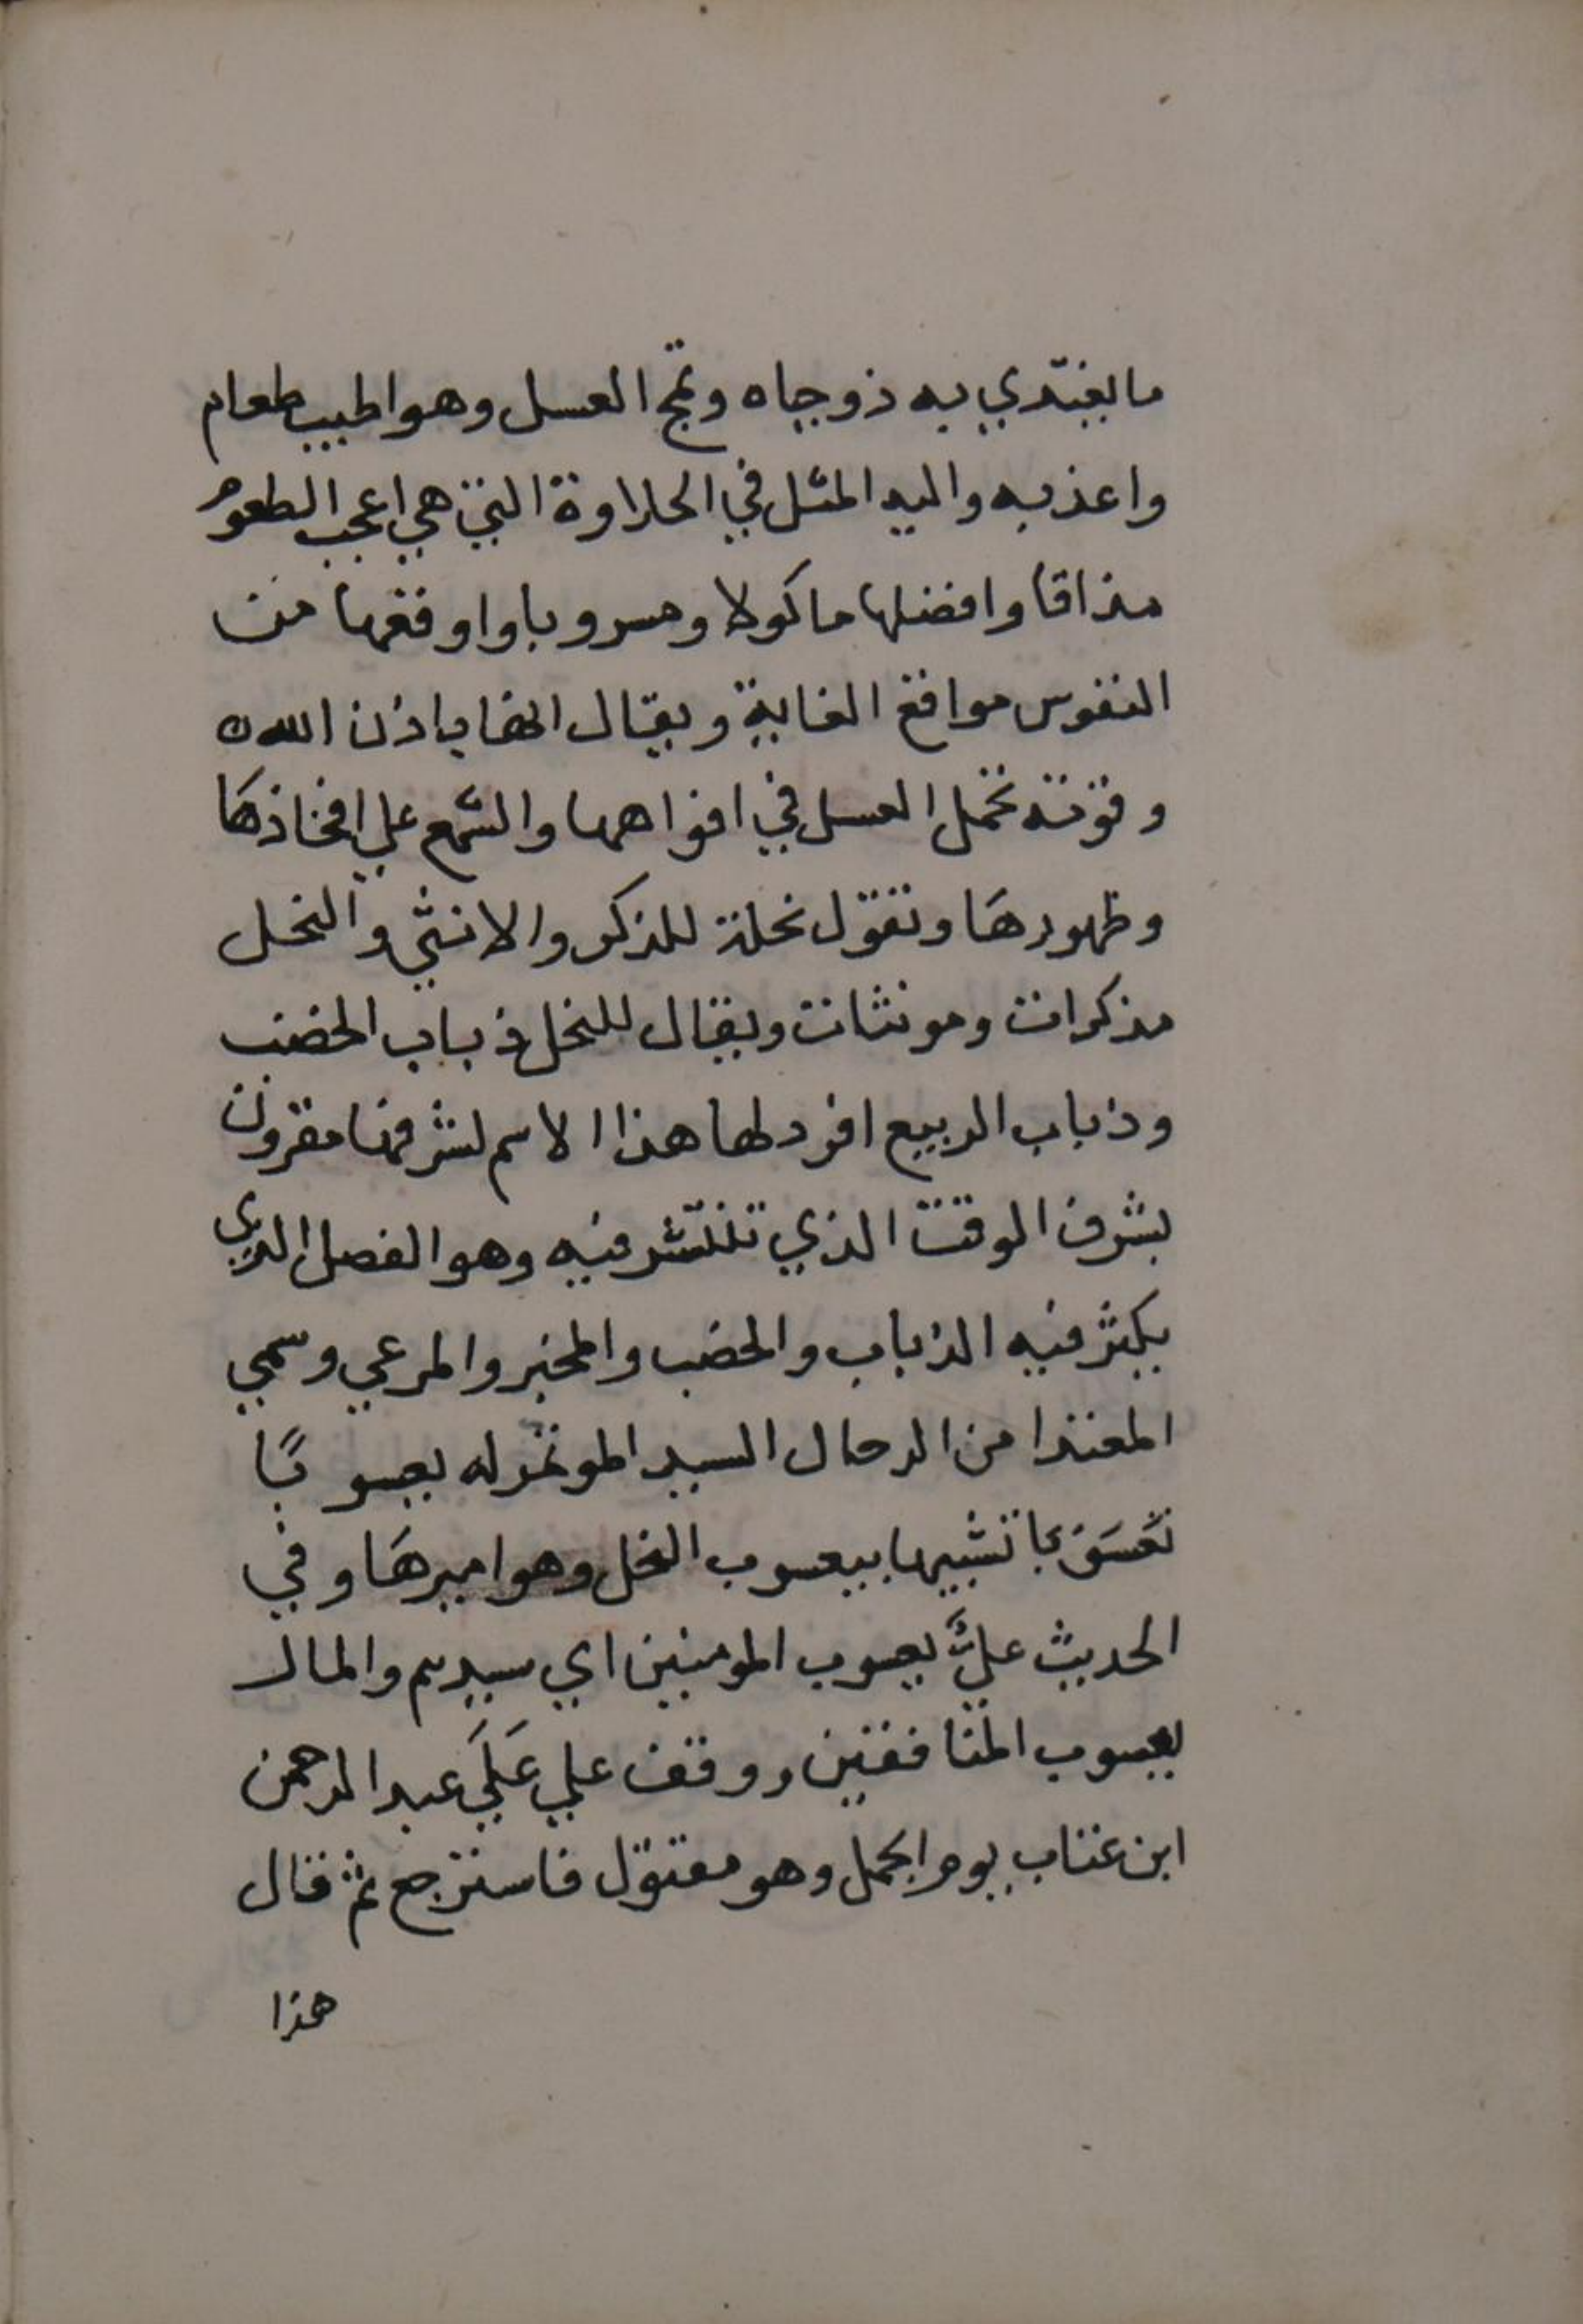 ما يغتدي به ذو حياه وتمج العسل وهو اطيب طعام
واعذبه واليه المثل في الحلاوة التي هي اعجب الطعوم
مذاقا وافضلها ماكولا ومسروبا واوقعها من
النفوس مواقع الغاية ويقال انها باذن الله
وقوته تحمل العسل في افواهها والشمع علي افخاذها
وظهورها وتقول نحلة للذكر والانثي والنحل
مذكرات ومونثات ويقال للنحل ذباب الخضب
وذباب الربيع افرد لها هذا الاسم لشرفها مقرون
بشرف الوقت الذي تنتشر فيه وهو الفصل الذي
يكثر فيه الذباب والخضب والخير والمرعي وسمي
من الرحال السيد له يعسوبًا
تشبيها بيعسوب النحل وهو اميرها وفي
الحديث عليٌّ يعسوب المومنين اي سيدهم والمال
يعسوب المنافقين ووقف علي عَلَي عبد الرحمن
ابن عتاب يوم الجمل وهو مقتول فاسترجع ثم قال
هذا